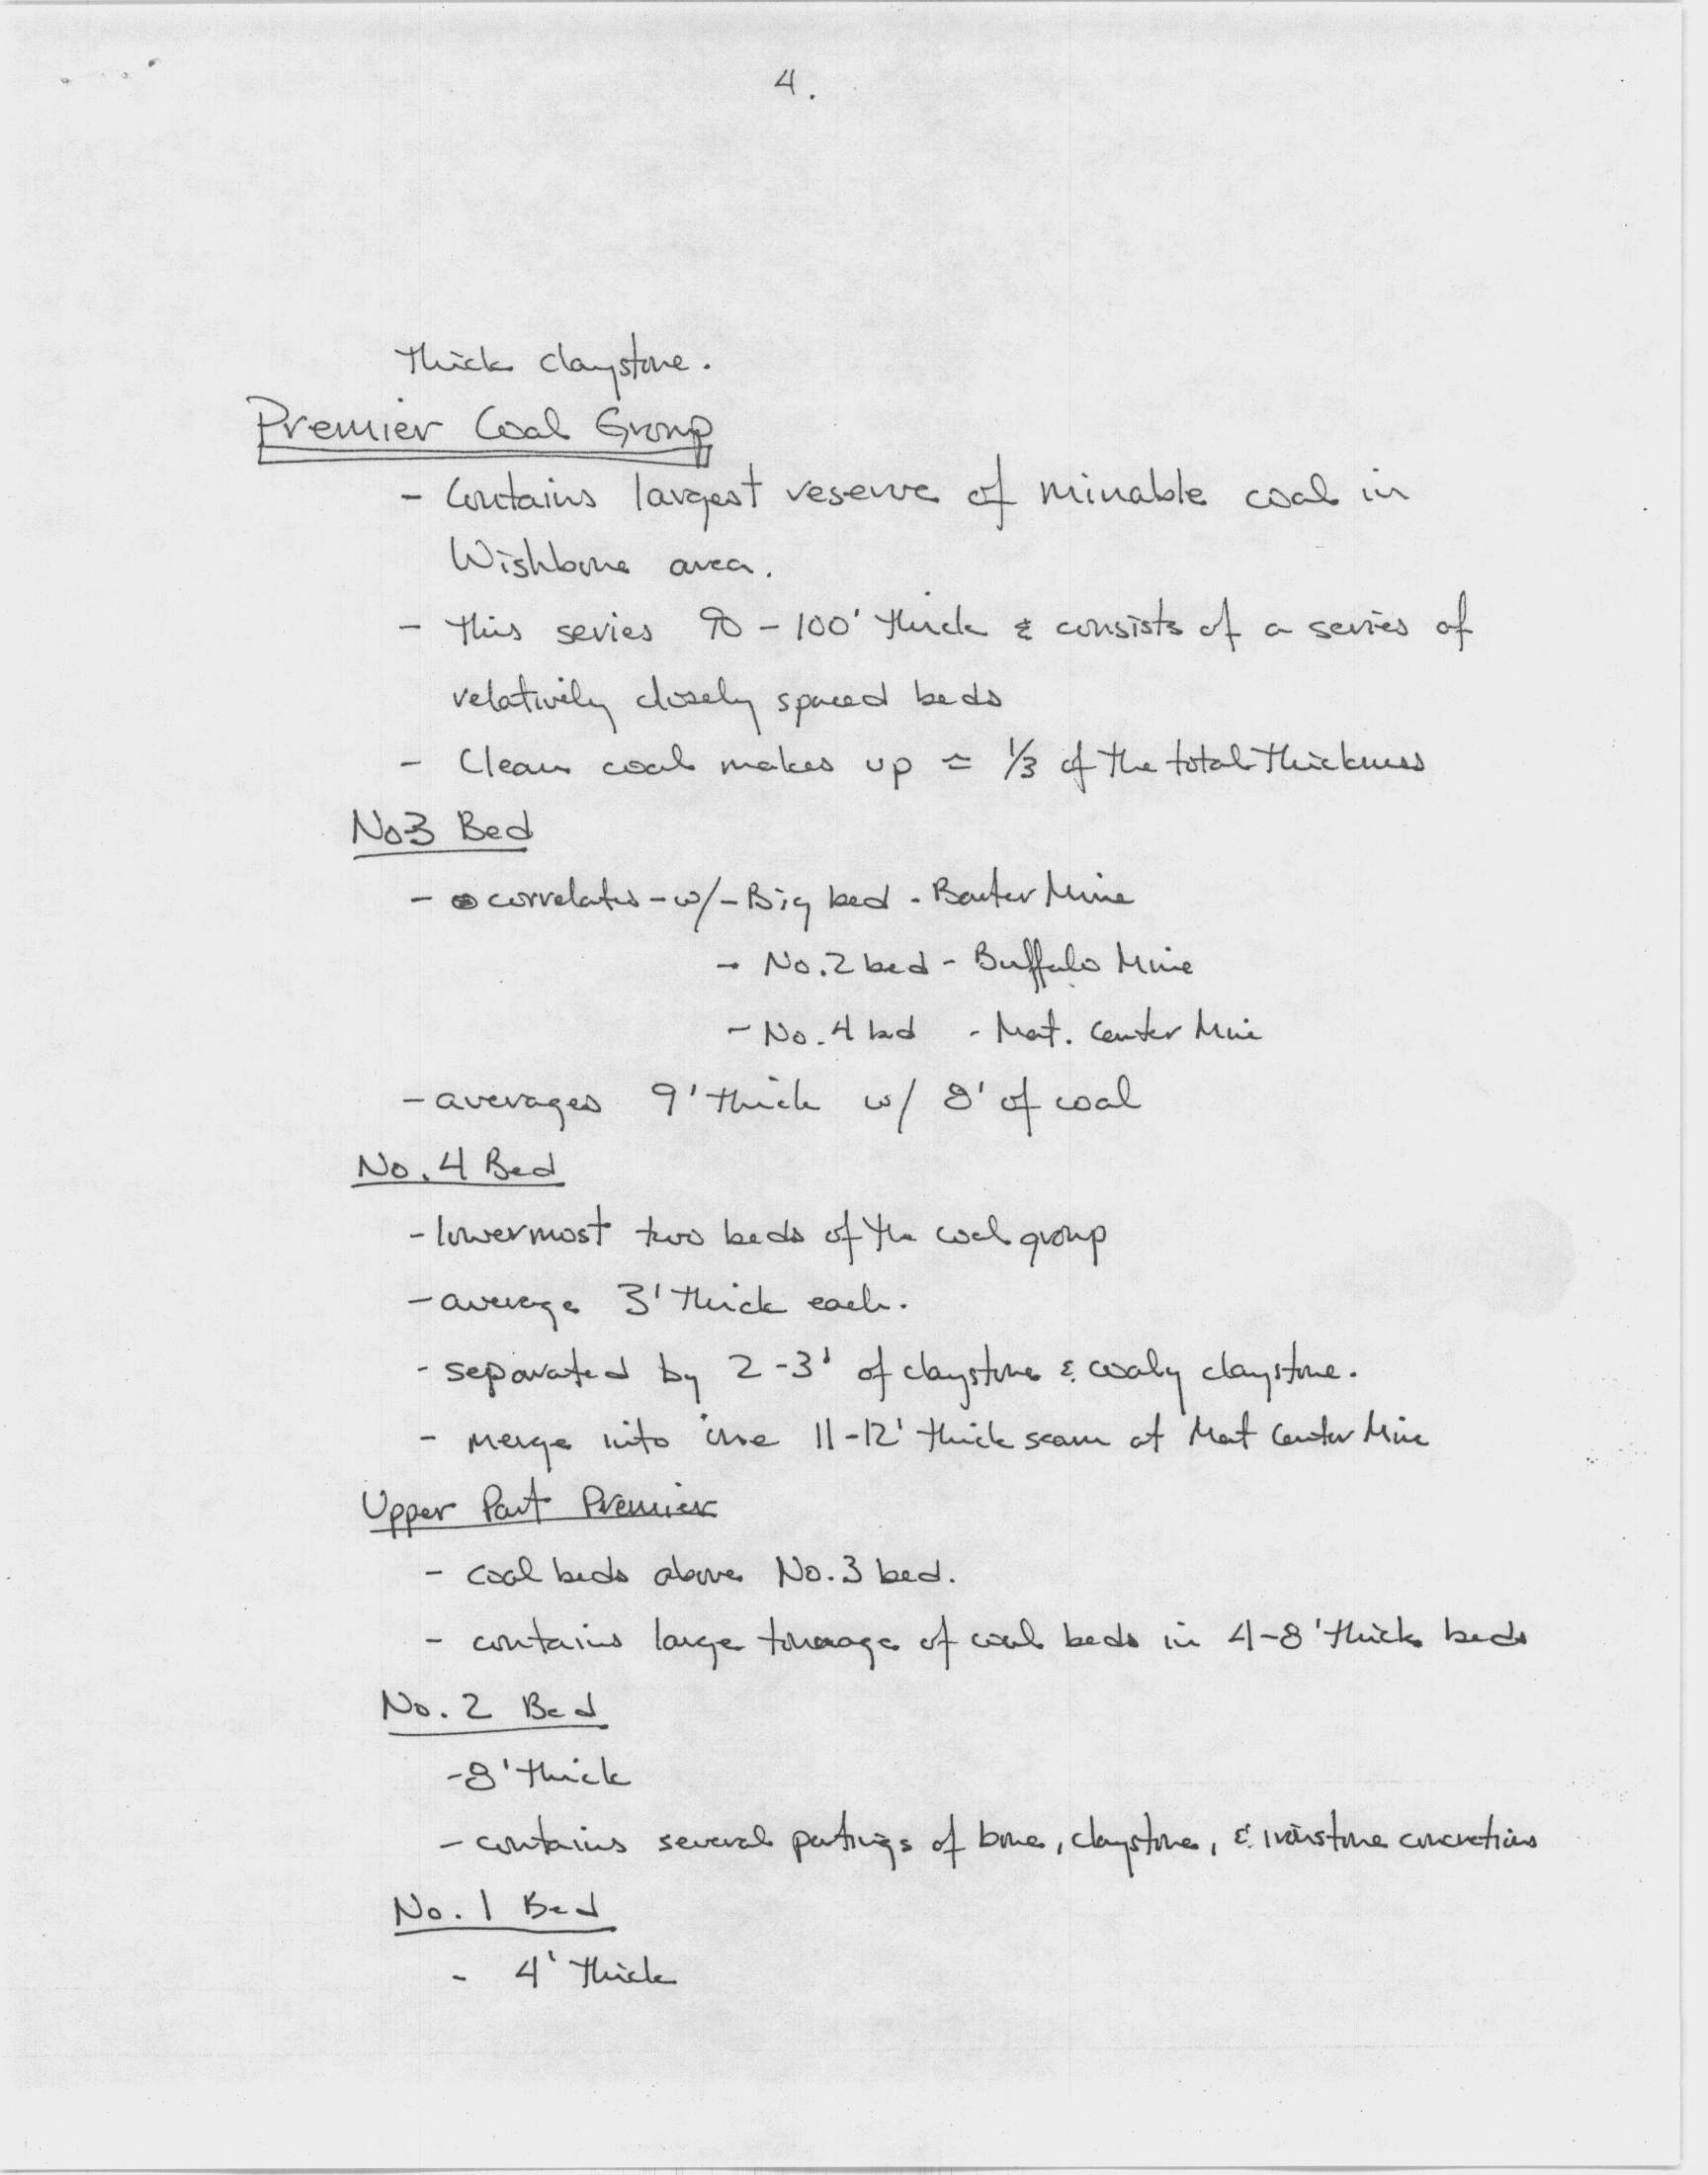 4.
thick claystone.
Premier Coal Group
- Contains largest reserve of minable coal in
Wishbone area.
- this series 90-100' thick & consists of a series of
relatively closely spaced beds
- Clean coal makes up ≈ 1/3 of the total thickness
No3 Bed
- correlates - w/ - Big bed - Baxter Mine
- No. 2 bed - Buffalo Mine
- No. 4 bed - Mat. Center Mine
- averages 9' thick w/ 8' of coal
No. 4 Bed
- lowermost two beds of the coal group
- average 3' thick each.
- separated by 2-3' of claystone & coaly claystone.
- merge into one 11-12' thick seam at Mat Center Mine
Upper Part Premier
- coal beds above No. 3 bed.
- contains large tonnage of coal beds in 4-8' thick beds
No. 2 Bed
- 8' thick
- contains several partings of bone, claystone, & ironstone concretions
No. 1 Bed
- 4' thick